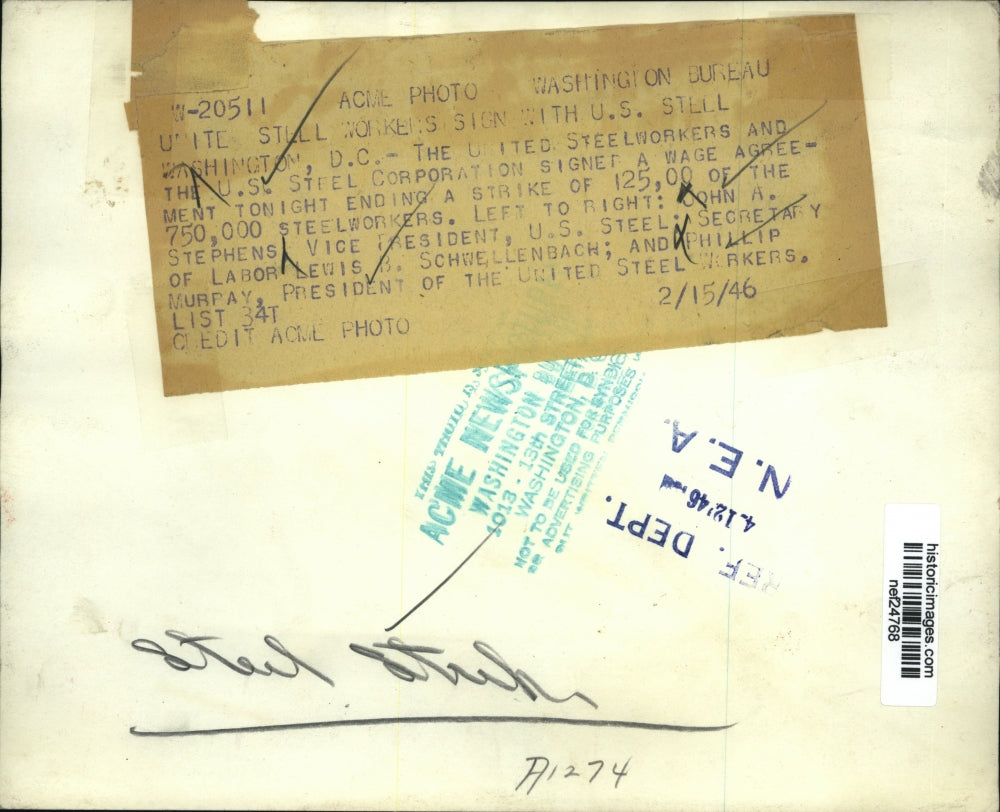 W-20511 ACME PHOTO WASHINGTON BUREAU
UNITE STEEL WORKERS SIGN WITH U.S. STELL
WASHINGTON, D.C.- THE UNITED STEELWORKERS AND
THE U.S. STEEL CORPORATION SIGNED A WAGE AGREE-
MENT TONIGHT ENDING A STRIKE OF 125,00 OF THE
750,000 STEELWORKERS. LEFT TO RIGHT: JOHN A.
STEPHENS, VICE PRESIDENT, U.S. STEEL; SECRETARY
OF LABOR LEWIS B. SCHWELLENBACH; AND PHILLIP
MURRAY, PRESIDENT OF THE UNITED STEEL WORKERS.
LIST 34T 2/15/46
CREDIT ACME PHOTO
ACME NEWSP
WASHINGTON BU
1013 - 13th STREET
WASHINGTON, D. C.
NOT TO BE USED FOR SYNDIC
OR ADVERTISING PURPOSES
REF. DEPT.
4-12'46
N.E.A.
historicimages.com
nef24768
Steel Strike
A1274